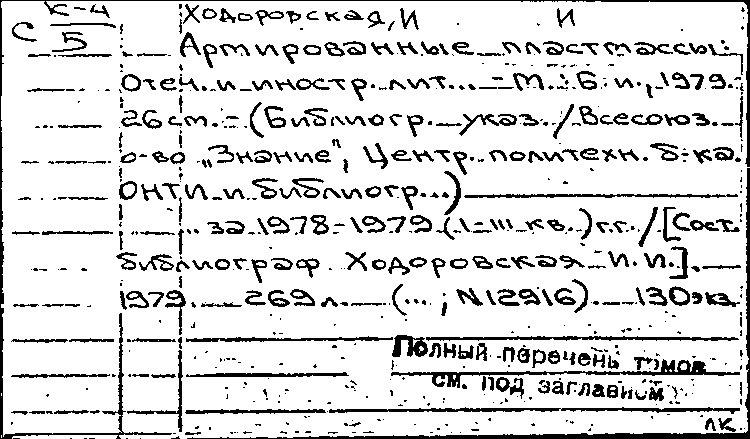 К-4 Ходоровская, И И
С 5 Армированные пластмассы:
отеч. и иностр. лит... - М.: Б. и., 1979. -
26 см. - (Библиогр. указ. / Всесоюз.
о-во „Знание", Центр. политехн. б-ка.
ОНТИ и библиогр...)
... за 1978-1979 (I-III кв.) г.г. / [Сост.
библиограф Ходоровская И. И.].
1979. 269 л. (...; N 12916). 130 экз.
Полный перечень томов
см. под заглавием
ЛК